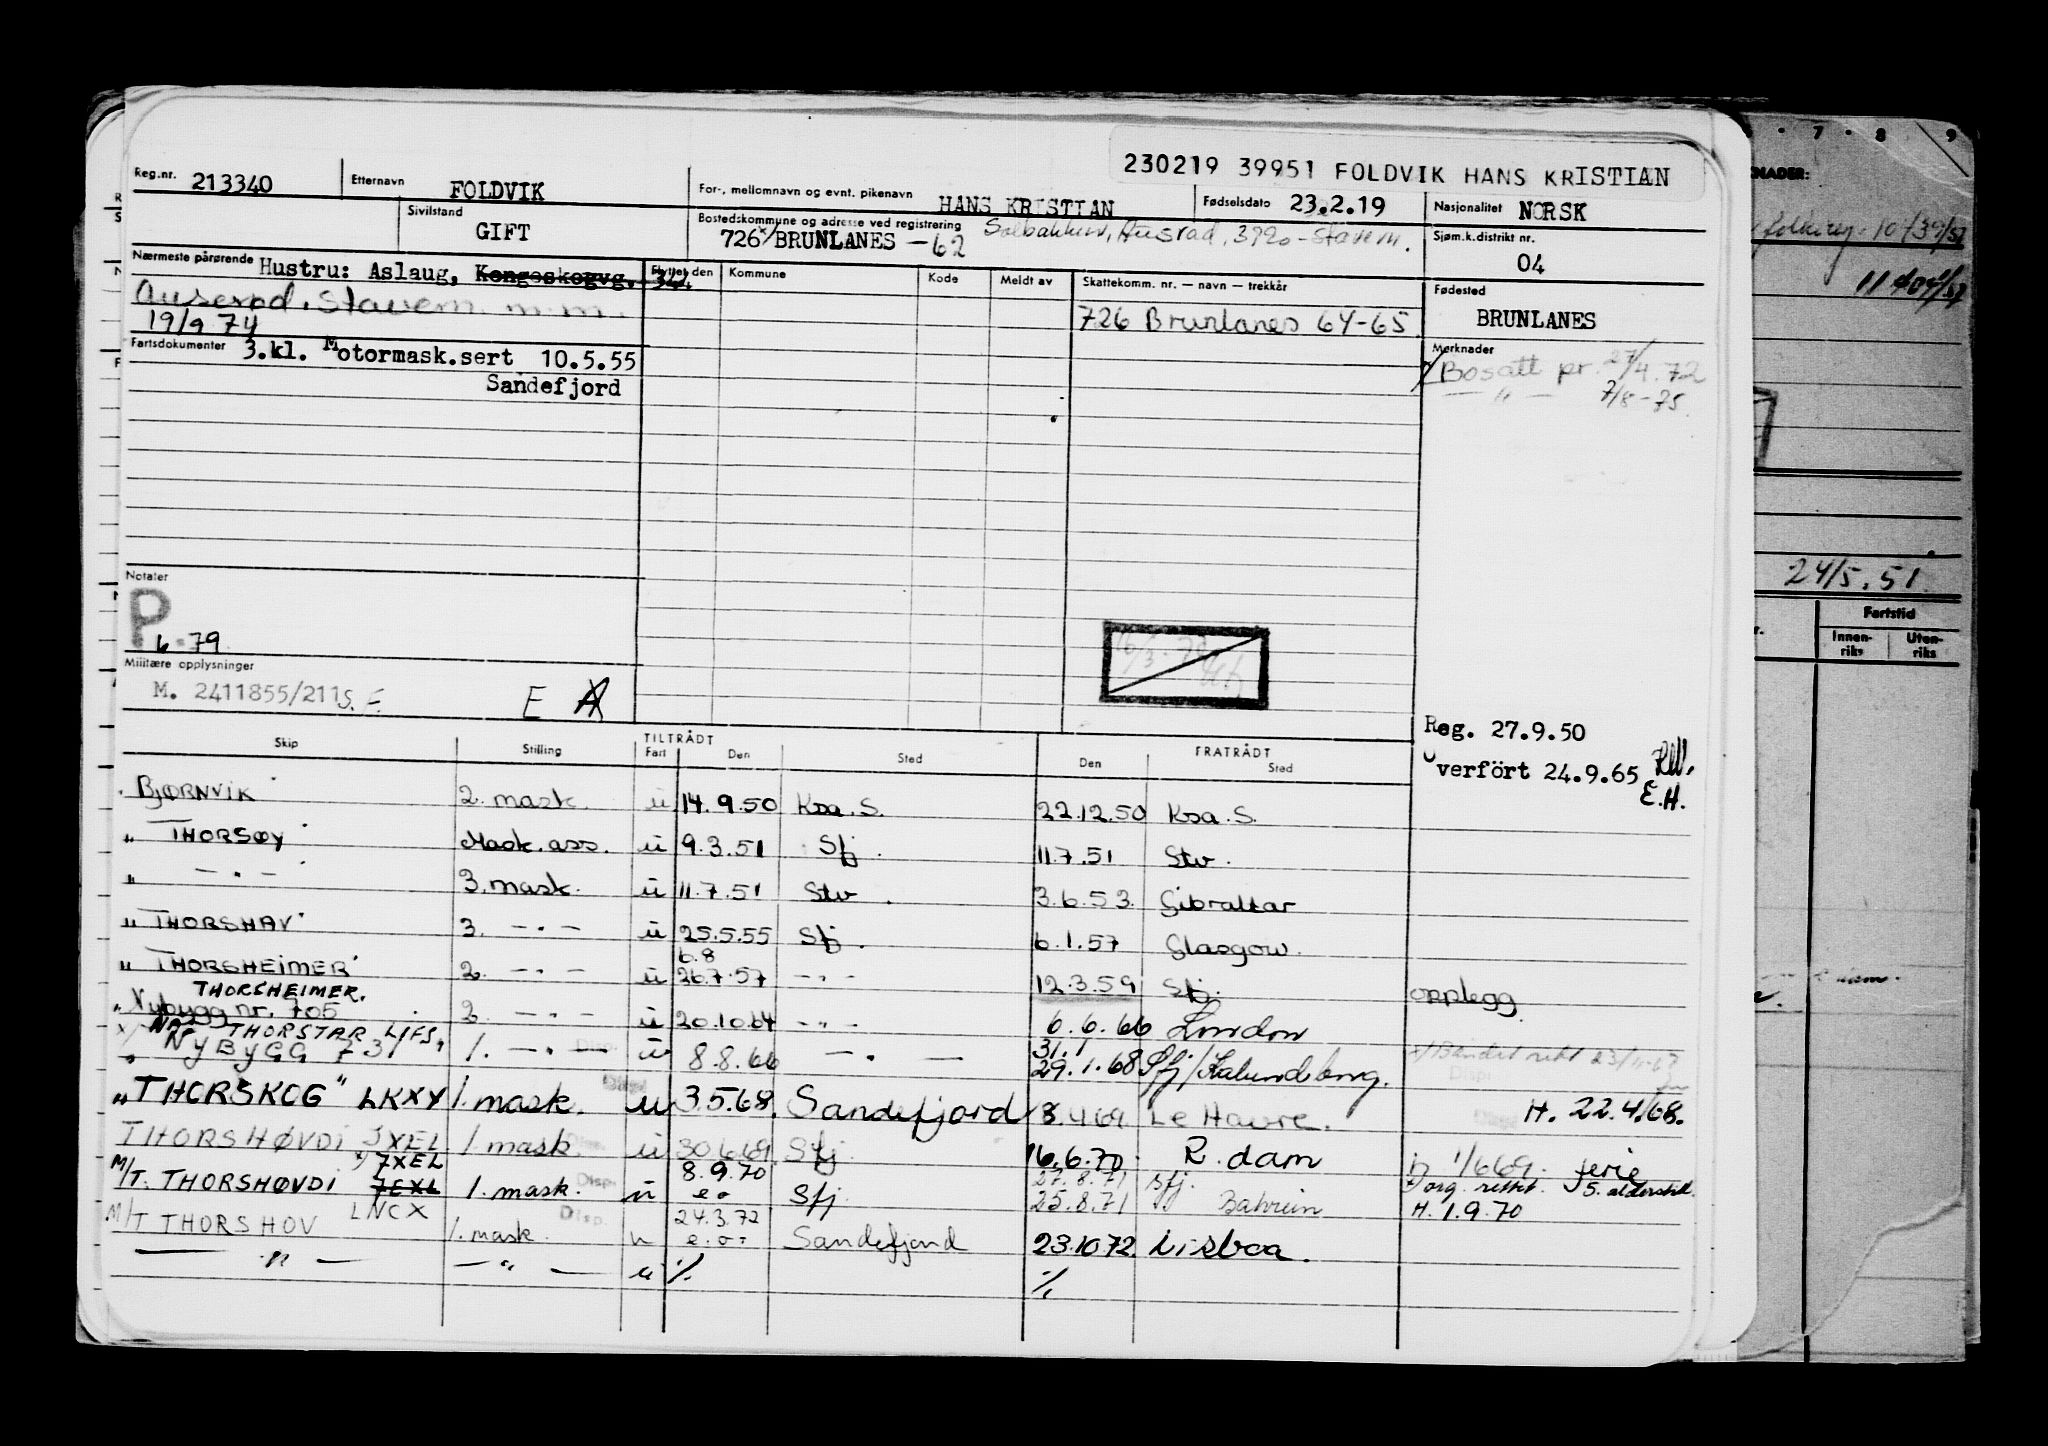 230219 39951 FOLDVIK HANS KRISTIAN
Reg.nr. 213340 Etternavn FOLDVIK For-, mellomnavn og evnt. pikenavn HANS KRISTIAN Fødselsdato 23.2.19 Nasjonalitet NORSK
Sivilstand GIFT Bostedskommune og adresse ved registrering 726 x/ BRUNLANES - 62 Solbakken, Ausrød, 3290 - Stavern. Sjøm.k.distrikt nr. 04
Nærmeste pårørende Hustru: Aslaug, Flyttet den Kommune Kode Meldt av Skattekomm. nr. — navn — trekkår Fødested BRUNLANES
Auserød. Stavern. m.m. 726 Brunlanes 64-65
19/9 74
Fartsdokumenter 3.kl. Motormask.sert 10.5.55
Sandefjord
Merknader
x/ Bosatt pr. 27/4.72
— " — 7/8-75.
Notater
P
6.79
Militære opplysninger
M. 2411855/211 S.F. E A
Reg. 27.9.50
Overfört 24.9.65
E.H.
TILTRÅDT FRATRÅDT
Skip Stilling Fart Den Sted Den Sted
BJØRNVIK 2. mask. u 14.9.50 Ksa.S. 22.12.50 Ksa.S.
" THORSØY Mask.ass. u 9.3.51 Sfj. 11.7.51 Stv.
" — " — 3.mask. u 11.7.51 Stv. 3.6.53. Gibraltar
" THORSHAV 3. — " — u 25.5.55 Sfj. 6.1.57 Glasgow.
6.8
" THORSHEIMER 2. — " — u 26.7.57 — " — 12.3.59 Sfj. opplegg
THORSHEIMER.
" Nybygg nr. 705 2. — " — u 20.10.64 — " — 6.6.66 London
THORSTAR LIFS
" NYBYGG 731 1. — " — u 8.8.66 — " — 31.1 29.1.68 Sfj/Kalundborg.
" THORSKOG" LKXY 1. mask. u 3.5.68. Sandefjord 8.4.69 Le Havre. H. 22.4.68.
THORSHØVDI JXEL 1. mask u 30.6.69 Sfj. 16.6.70. R.dam 1/6 69. ferie
x) 7XEL 8.9.70 27.8.71 Sfj.
M/T. THORSHØVDI 7EXL 1. mask. u e.o Sfj 25.8.71 Bahrein org. rettet. S. alderstill.
H. 1.9.70
LNCX 24.3.72
M/T THORSHOV 1. mask. u e.o. Sandefjord 23.10.72. Lisboa.
— " — — " — u ./. ./.
7 8 9
24/5.51
Fartstid
Innenriks Utenriks